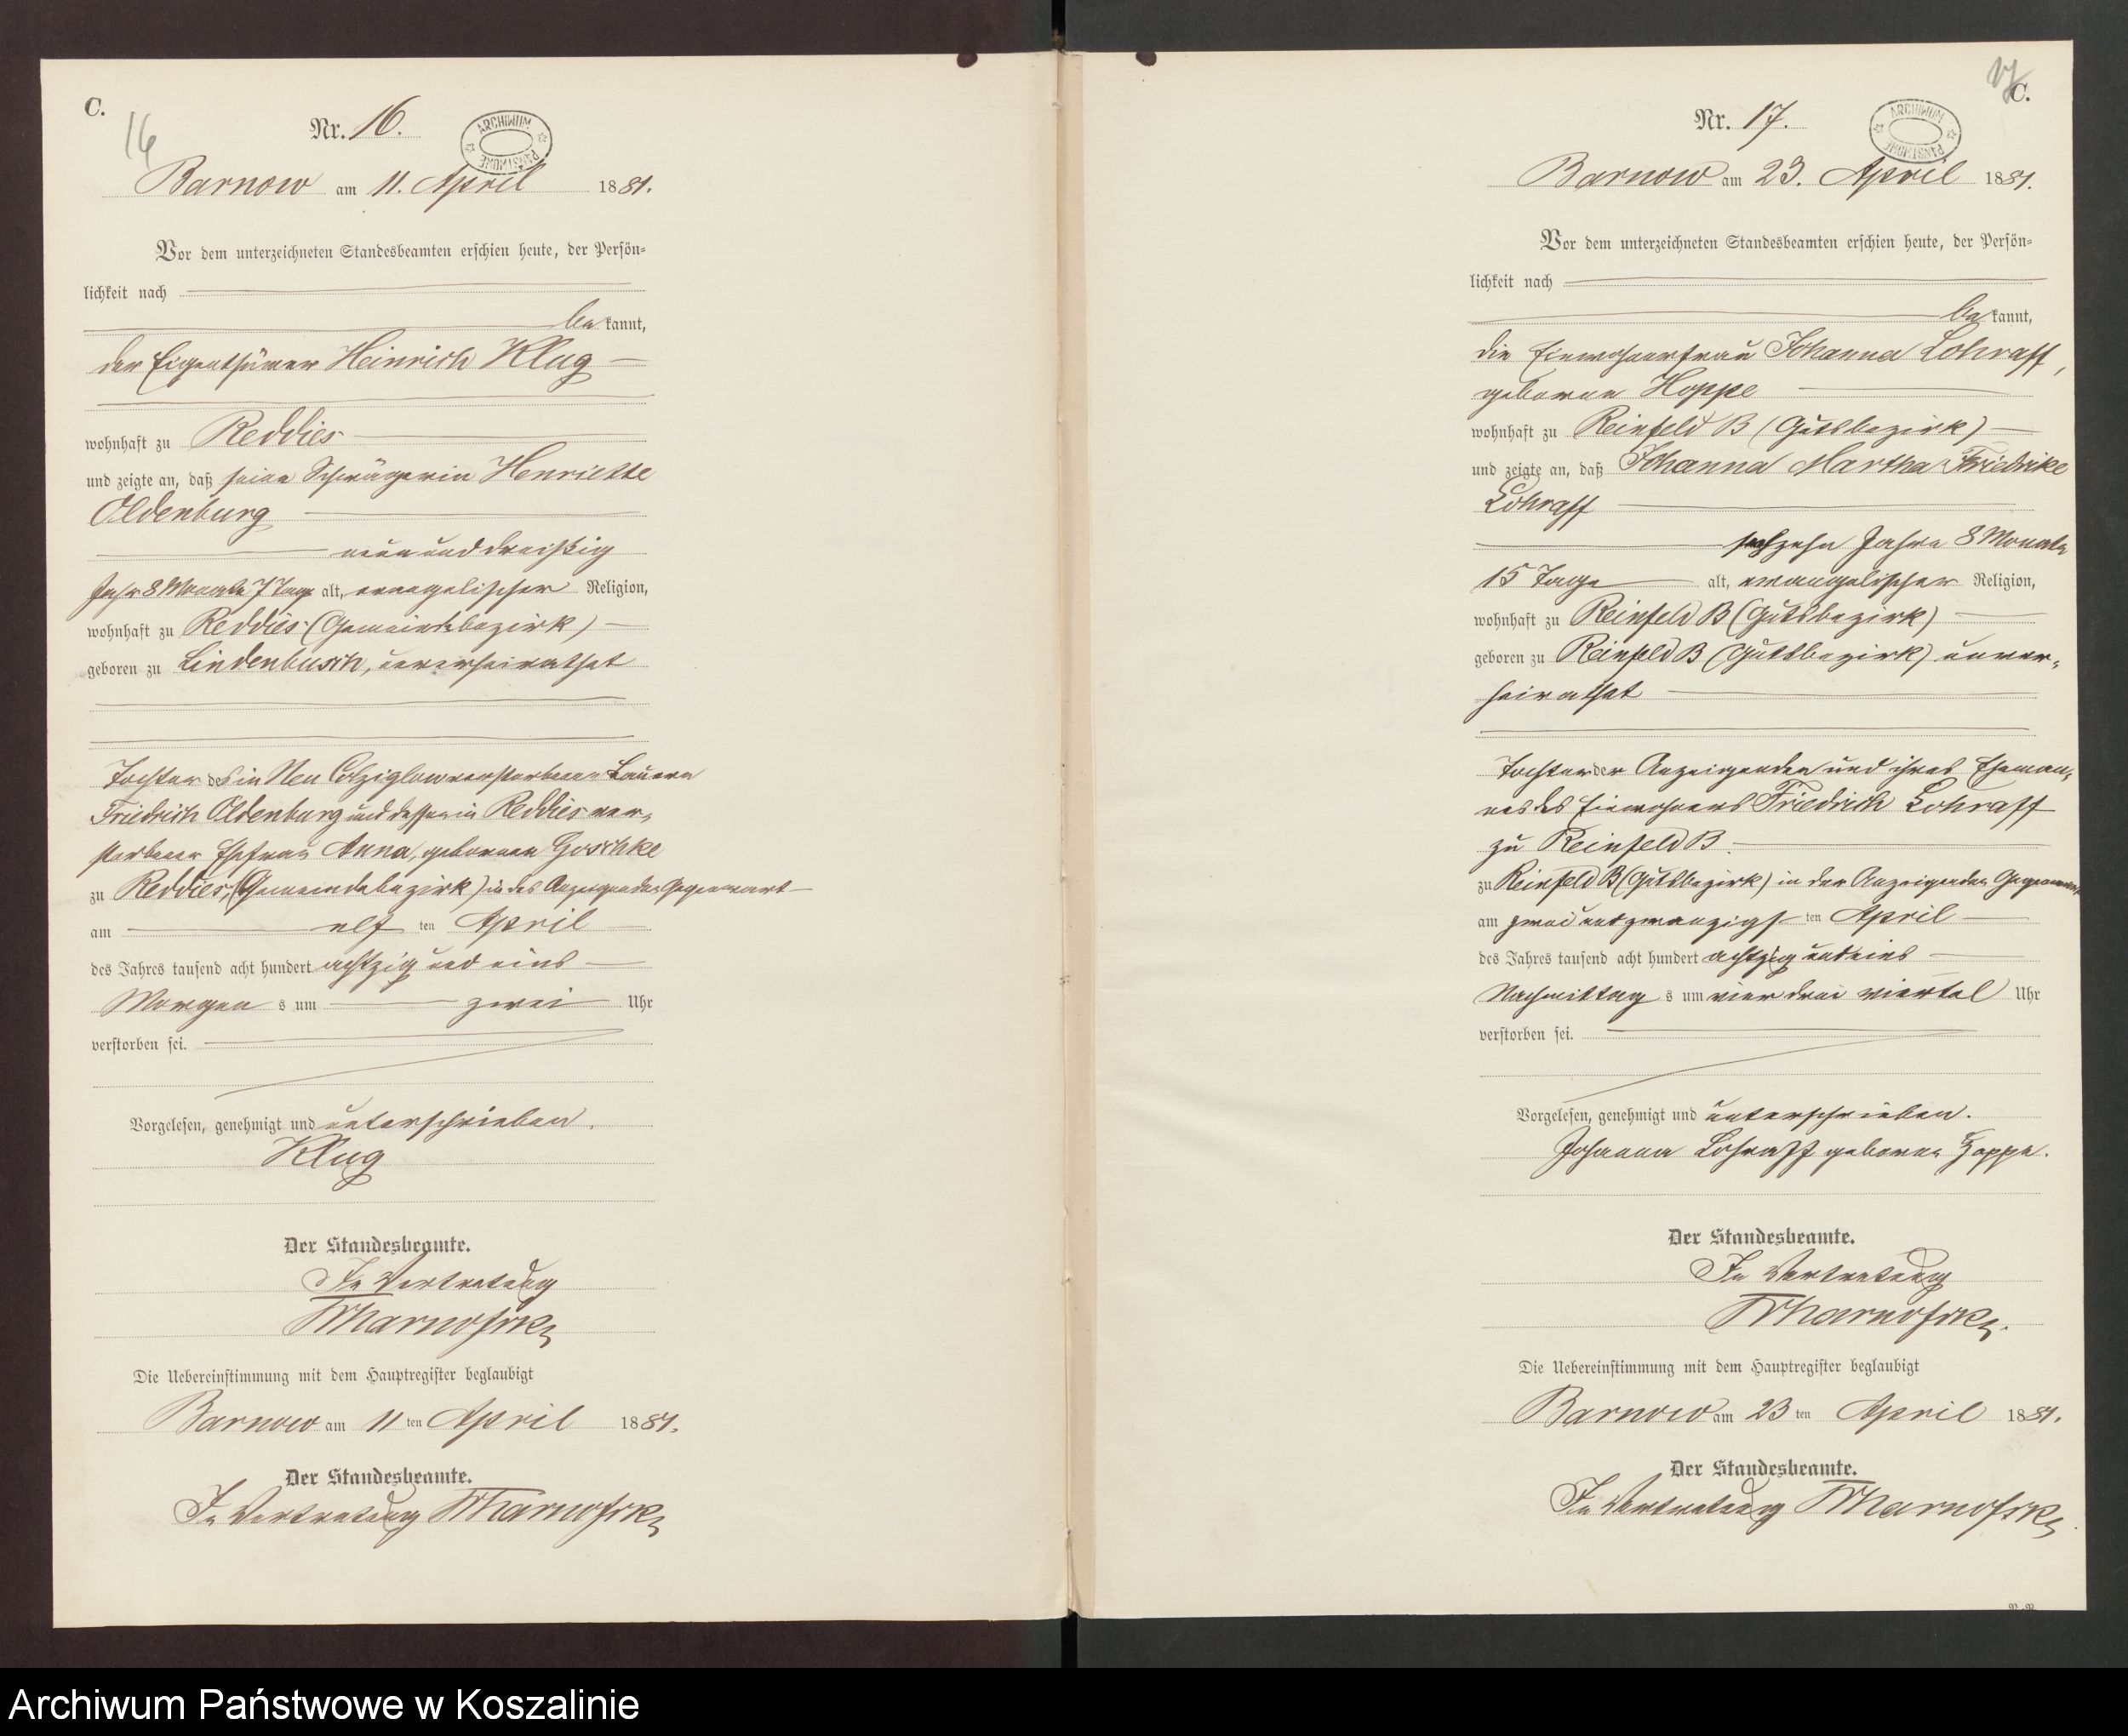 C.
16
Nr. 16.
ARCHIWUM PAŃSTWOWE
Barnow am 11. April 1881.
Vor dem unterzeichneten Standesbeamten erschien heute, der Persön-
lichkeit nach
bekannt,
der Eigenthümer Heinrich Klug
wohnhaft zu Reddies
und zeigte an, daß seine Schwägerin Henriette
Oldenburg
neun und dreißig
Jahr 8 Monate 7 Tage alt, evangelischer Religion,
wohnhaft zu Reddies (Gemeindebezirk)
geboren zu Lindenbusch, unverheirathet
Tochter des in Neu Colziglow verstorbenen Bauern
Friedrich Oldenburg und dessen in Reddies ver-
storbenen Ehefrau Anna, geborenen Goschke
zu Reddies, (Gemeindebezirk) in des Anzeigenden Gegenwart
am elf ten April
des Jahres tausend acht hundert achtzig und eins
Morgen s um zwei Uhr
verstorben sei.
Vorgelesen, genehmigt und unterschrieben.
Klug
Der Standesbeamte.
In Vertretung
Die Uebereinstimmung mit dem Hauptregister beglaubigt
Barnow am 11 ten April 1881.
Der Standesbeamte.
In Vertretung
17
C.
Nr. 17.
ARCHIWUM PAŃSTWOWE
Barnow am 23. April 1881.
Vor dem unterzeichneten Standesbeamten erschien heute, der Persön-
lichkeit nach
bekannt,
die Einwohnerfrau Johanna Lohraff,
geborene Hoppe
wohnhaft zu Reinfeld B (Gutsbezirk)
und zeigte an, daß Johanna Martha Friedrike
Lohraff
sechzehn Jahre 8 Monate
15 Tage alt, evangelischer Religion,
wohnhaft zu Reinfeld B (Gutsbezirk)
geboren zu Reinfeld B (Gutsbezirk) unver-
heirathet
Tochter der Anzeigenden und ihres Eheman-
nes des Einwohners Friedrich Lohraff
zu Reinfeld B.
zu Reinfeld B (Gutsbezirk) in der Anzeigenden Gegenwart
am zwei und zwanzigs ten April
des Jahres tausend acht hundert achtzig und eins
Nachmittag s um vier drei viertel Uhr
verstorben sei.
Vorgelesen, genehmigt und unterschrieben.
Johanna Lohraff geborene Hoppe.
Der Standesbeamte.
In Vertretung
Die Uebereinstimmung mit dem Hauptregister beglaubigt
Barnow am 23 ten April 1881.
Der Standesbeamte.
In Vertretung
Archiwum Państwowe w Koszalinie